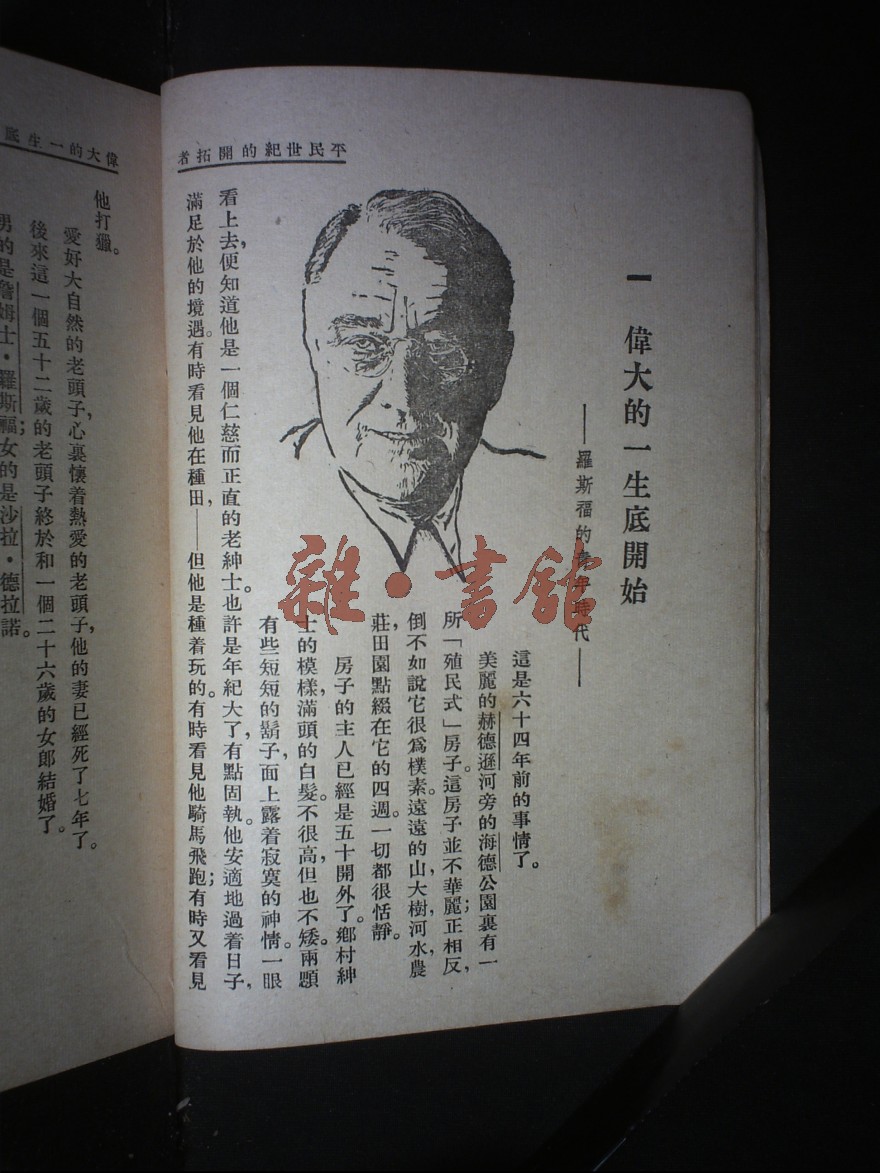 平民世紀的開拓者
一 偉大的一生底開始
——羅斯福的青年時代——
這是六十四年前的事情了。
美麗的赫德遜河旁的海德公園裏有一
所「殖民式」房子。這房子並不華麗；正相反，
倒不如說它很爲樸素。遠遠的山，大樹，河水，農
莊，田園點綴在它的四週。一切都很恬靜。
房子的主人已經是五十開外了。鄉村紳
士的模樣，滿頭的白髮。不很高，但也不矮。兩顋
有些短短的鬍子，面上露着寂寞的神情。一眼
看上去，便知道他是一個仁慈而正直的老紳士。也許是年紀大了，有點固執。他安適地過着日子，
滿足於他的境遇。有時看見他在種田，——但他是種着玩的。有時看見他騎馬飛跑；有時又看見
偉大的一生底
他打獵。
愛好大自然的老頭子，心裏懷着熱愛的老頭子，他的妻已經死了七年了。
後來這一個五十二歲的老頭子終於和一個二十六歲的女郎結婚了。
男的是詹姆士·羅斯福；女的是沙拉·德拉諾。
雜·書館